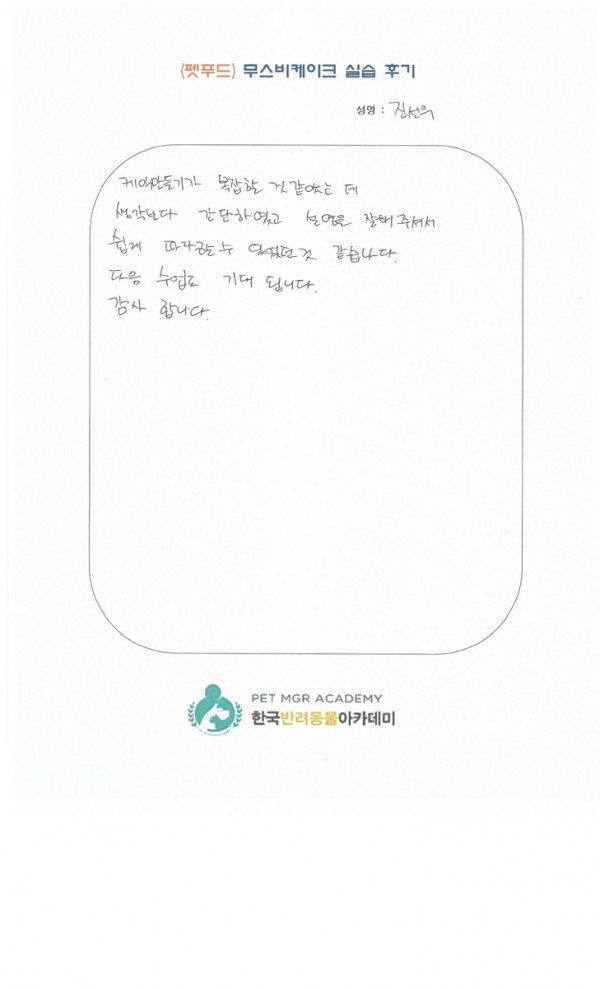 (펫푸드) 무스비케이크 실습 후기
성명 : 진선욱
케익만들기가 복잡할 것 같았는데
생각보다 간단하였고 설명을 잘해주셔서
쉽게 따라할 수 있었던것 같습니다.
다음 수업도 기대 됩니다.
감사 합니다.
PET MGR ACADEMY
한국반려동물아카데미